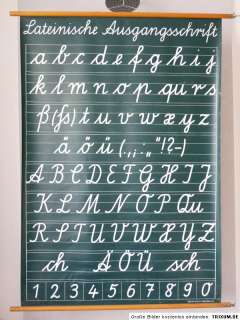 Lateinische Ausgangsschrift
a b c d e f g h i j
k l m n o p qu r s
ß (ſs) t u v w x y z
ä ö ü (.,;:„"!?-)
A B C D E F G H I J
K L M N O P Qu
R S T U V W X Y Z
ch Ä Ö Ü sch
1 2 3 4 5 6 7 8 9 0
Große Bilder kostenlos einbinden: TRIXUM.DE